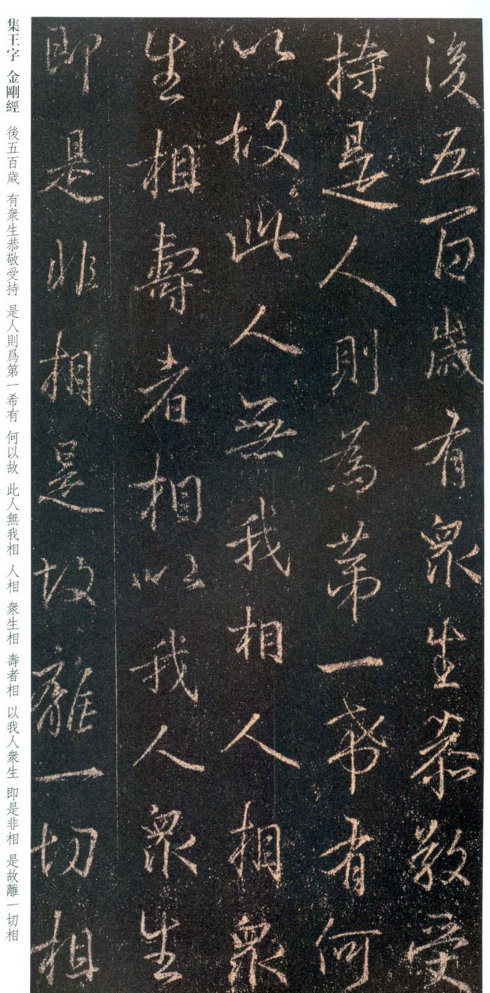 後五百歲有衆生恭敬受
持是人則為第一希有何
以故此人無我相人相衆
生相壽者相以我人衆生
即是非相是故離一切相
集王字 金剛經 後五百歲 有衆生恭敬受持 是人則爲第一希有 何以故 此人無我相 人相 衆生相 壽者相 以我人衆生 即是非相 是故離一切相